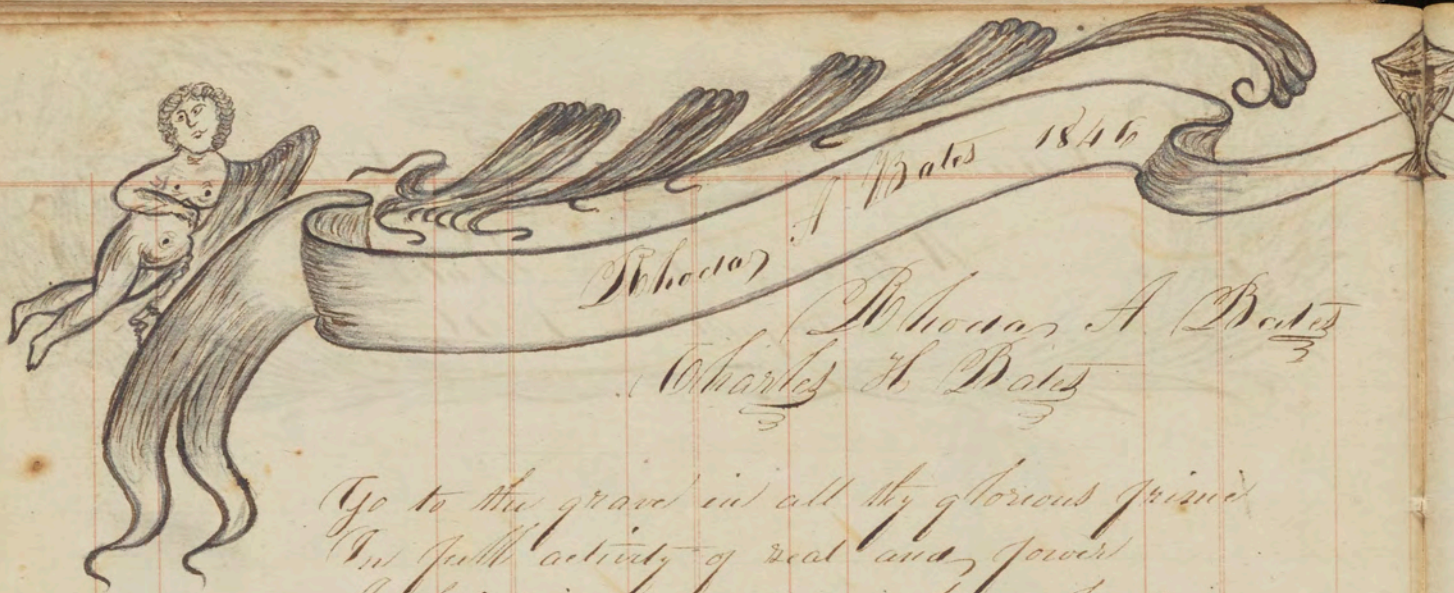 Rhoda A Bates 1846
Rhoda A Bates
Charles H Bates
Go to the grave in all thy glorious prime
In full activity of zeal and power